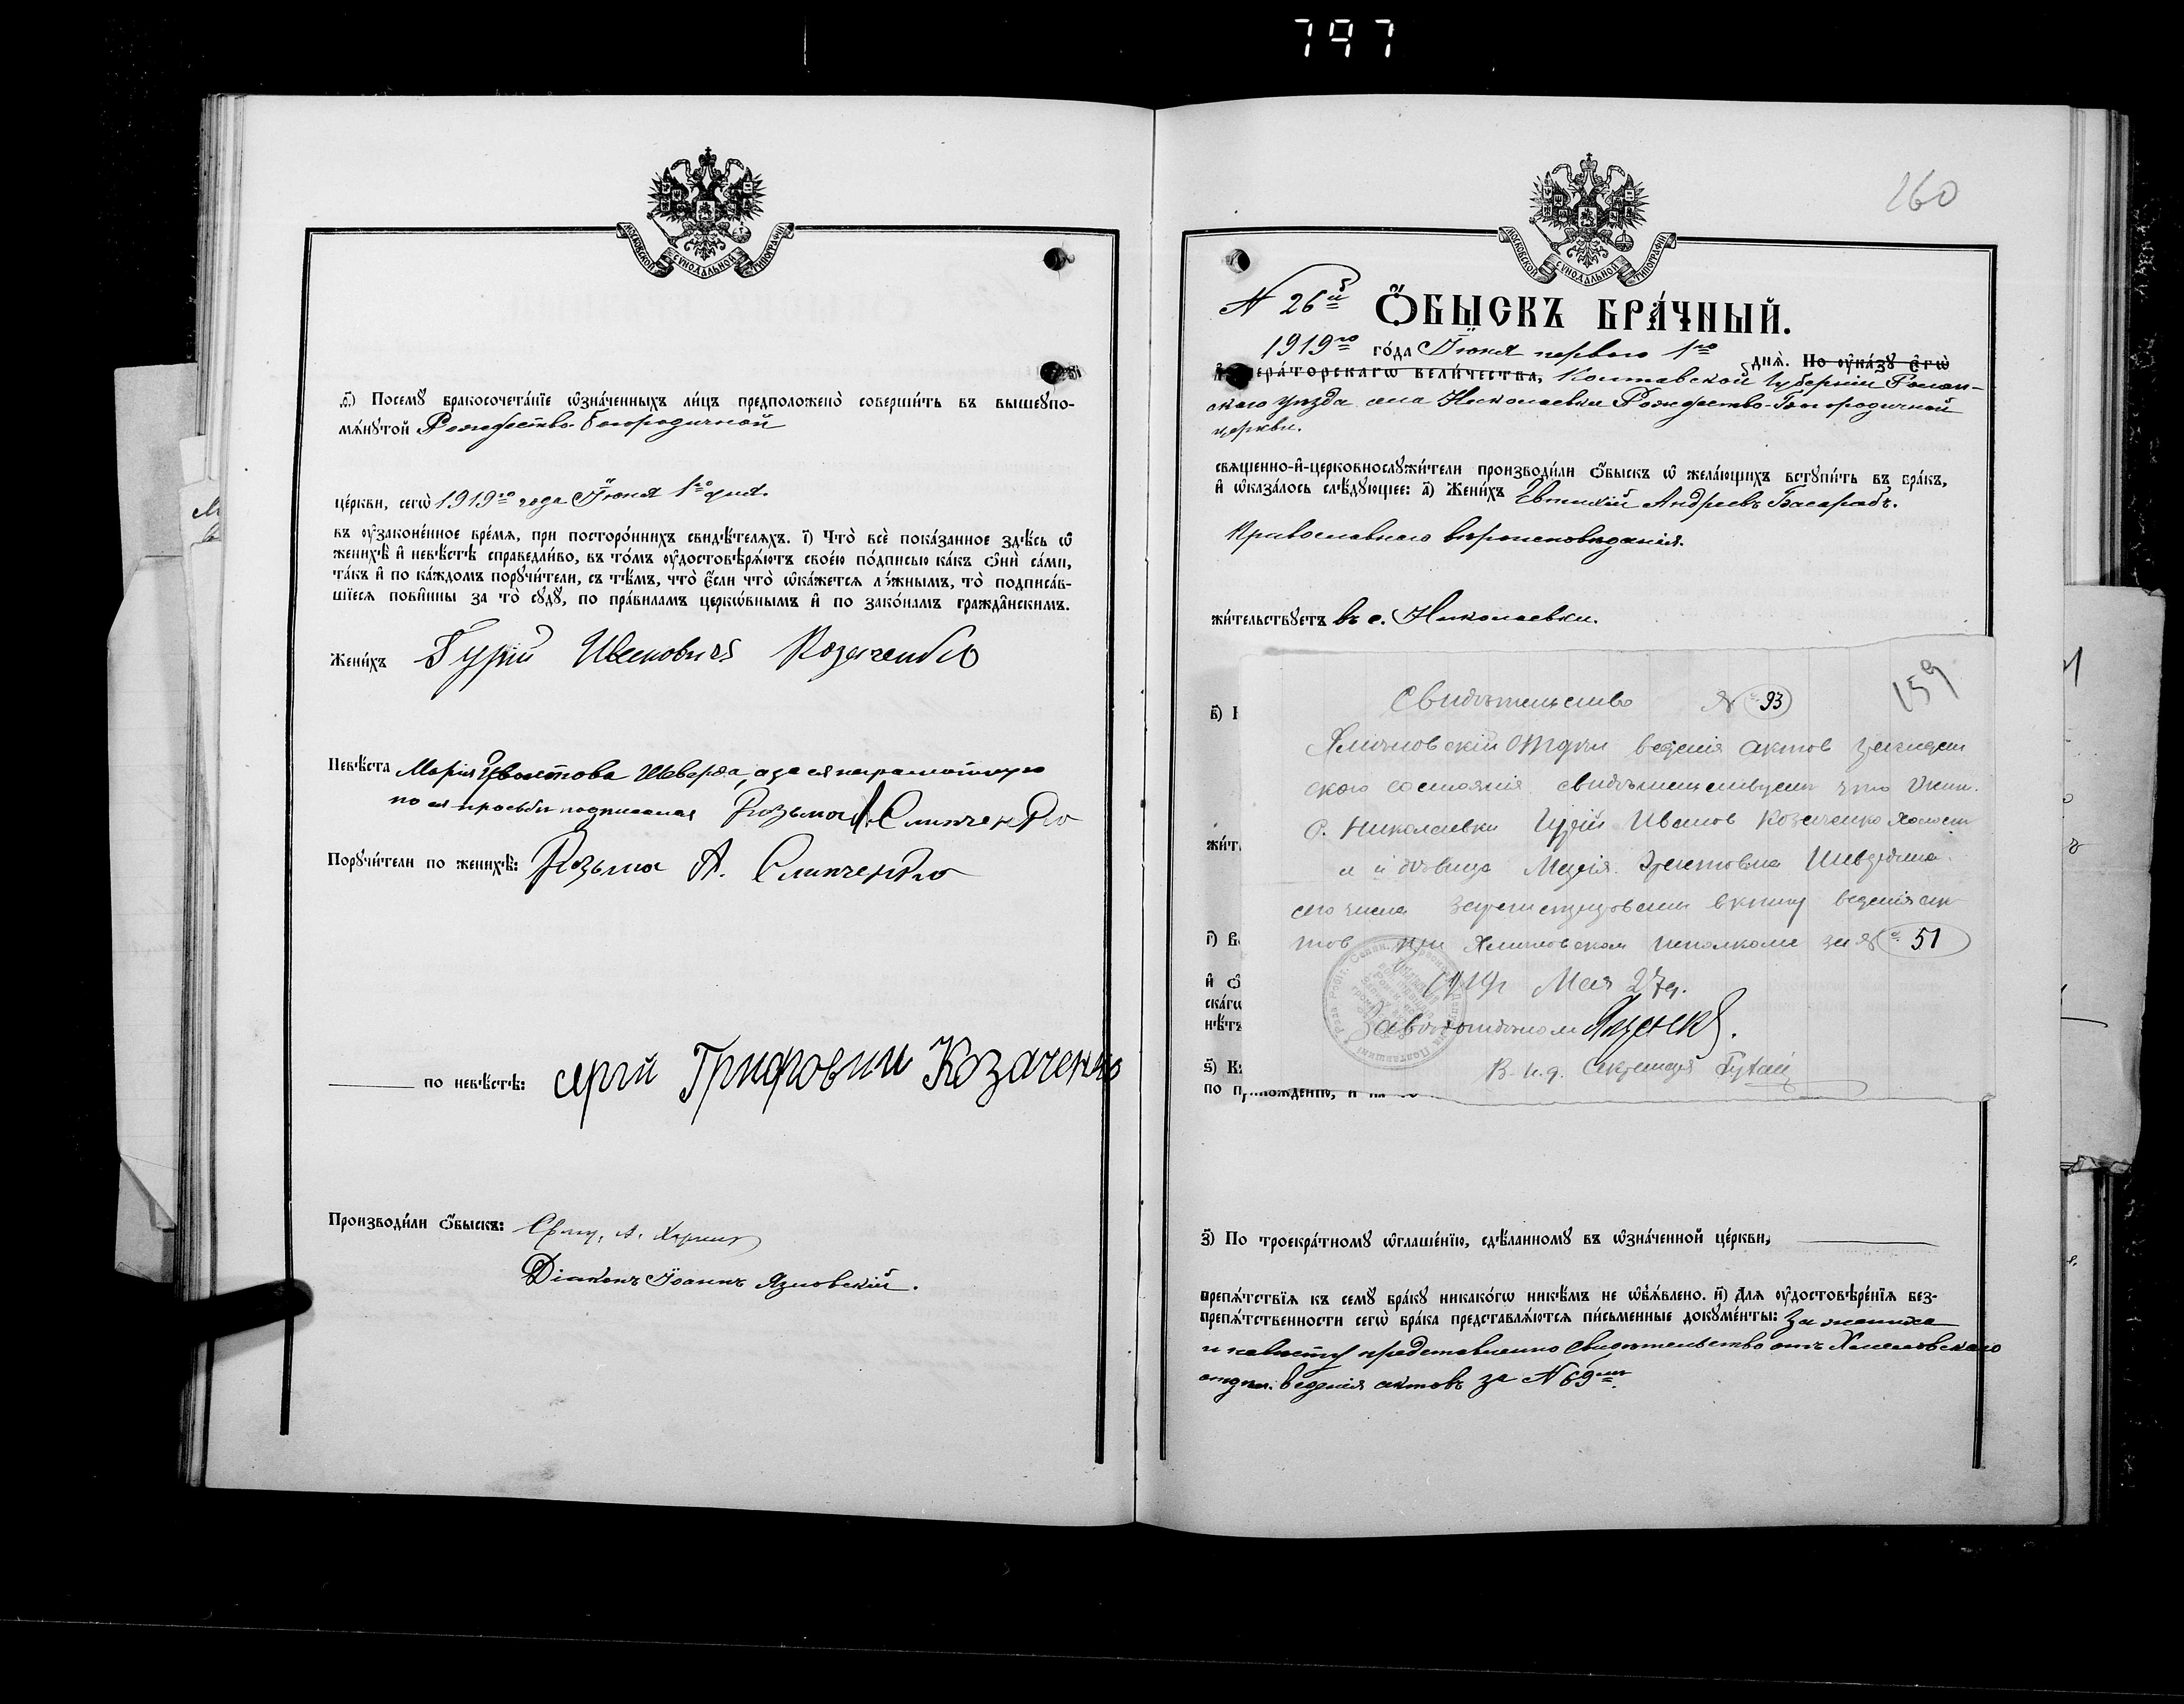 797
МОСКОВСКОЙ СѴНОДАЛЬНОЙ ТИПОГРАФІИ
ѳ҃) Посемꙋ̀ бракосочета́нїе ѡ҆зна́ченныхъ ли́цъ предположено̀ соверши́ть въ вышеꙋпо-
мѧ́нꙋтой Рождество-Богородичной
це́ркви, сегѡ̀ 1919го года Іюня 1го дня.
въ ᲂу҆зако́ненное вре́мѧ, при посторо́ннихъ свидѣ́телѧхъ. і҃) Что̀ всѐ пока́занное здѣ́сь ѡ҆
женихѣ̀ и҆ невѣ́стѣ справедли́во, въ то́мъ ᲂу҆достовѣрѧ́ютъ свое́ю по́дписью ка́къ ѻ҆нѝ са́ми,
та́къ и҆ по ка́ждомъ порꙋчи́тели, съ тѣ́мъ, что̀ є҆́сли что̀ ѡ҆ка́жетсѧ ло́жнымъ, то̀ подписа́в-
шїесѧ пови́нны за то̀ сꙋдꙋ̀, по пра́виламъ церкѡ́внымъ и҆ по зако́намъ гражда́нскимъ.
Жени́хъ Гурій Ивановичъ Козаченко
Невѣ́ста Марія Шверда, а за ея неграмотную
по ея просьбѣ подписался Козьма А. Слипченко
Порꙋчи́тели по женихѣ̀: Козьма А. Слипченко
по невѣ́стѣ: Сергій Трифовичъ Козаченко
Производи́ли ѻ҆́быскъ: Свящ. А.
Діаконъ Іоаннъ Язловскій.
160
МОСКОВСКОЙ СѴНОДАЛЬНОЙ ТИПОГРАФІИ
N 26й ѺБЫСКЪ БРА́ЧНЫЙ.
1919го го́да Іюня перваго 1го днѧ̀. По ᲂу҆ка́зꙋ є҆гѡ̀
и҆мпера́торскагѡ вели́чества, Полтавской Губерніи Ромен-
скаго уѣзда села Николаевки Рождество-Богородичной
церкви.
свѧще́нно-и҆-церковнослꙋжи́тели производи́ли ѻ҆́быскъ ѡ҆ жела́ющихъ встꙋпи́ть въ бра́къ,
и҆ ѡ҆каза́лось слѣ́дꙋющее: а҃) Жени́хъ Евтихій Андреевъ Басарабъ.
Православнаго вѣроисповѣданія.
жи́тельствꙋетъ въ с. Николаевки.
159
Свидѣтельство № 93
отдѣл веденія актов граждан
ского состоянія свидѣтельствует что
с. Николаевки Гурій Иванов Козаченко холост
и дѣвица Марія
сего числа зарегистрированы в книгу веденія ак
тов при исполкоме за № 51
1919г Мая 27д.
Завѣд отдѣлом Яценко.
В. и. д. Секретаря
б҃)
жит
г҃)
скагѡ
нѣтъ
ѕ҃)
з҃) По троекра́тномꙋ ѡ҆глаше́нїю, сдѣ́ланномꙋ въ ѡ҆зна́ченной це́ркви,
препѧ́тствїѧ къ семꙋ̀ бра́кꙋ никако́гѡ никѣ́мъ не ѡ҆б̾ѧ́влено. и҃) Длѧ ᲂу҆достовѣре́нїѧ без-
препѧ́тственности сегѡ̀ бра́ка представлѧ́ютсѧ пи́сьменные докꙋме́нты: За жениха
и невѣсту представленно свидѣтельство отъ Хмеловскаго
отдѣл. веденія актовъ за N 69